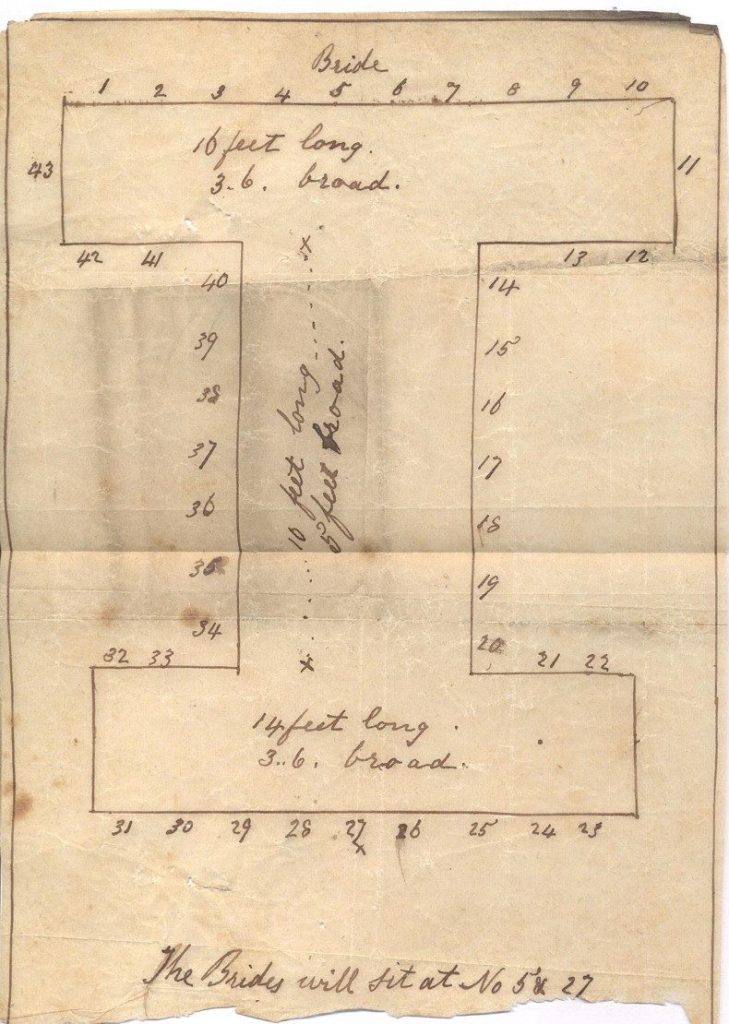 Bride
1 2 3 4 5 6 7 8 9 10
43
11
16 feet long.
3..6. broad.
42 41
13 12
40
14
39
15
38
16
37
17
36
18
35
19
34
20
32 33
21 22
10 feet long
5 feet broad.
14 feet long.
3..6. broad.
31 30 29 28 27 26 25 24 23
x
The Brides will sit at No 5 & 27